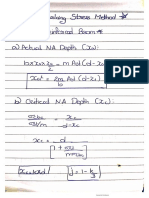 Working Stress Method
Reinforced Beam
a) Actual NA Depth (xa)
b × xa × xa/2 = m Ast (d - xa)
xa² = 2m/b Ast (d - xa)
b) Critical NA Depth (xc)
σcbc / σst/m = xc / d - xc
xc = d / [1 + σst / mσcbc]
[xc = kd] [j = 1 - k/3]